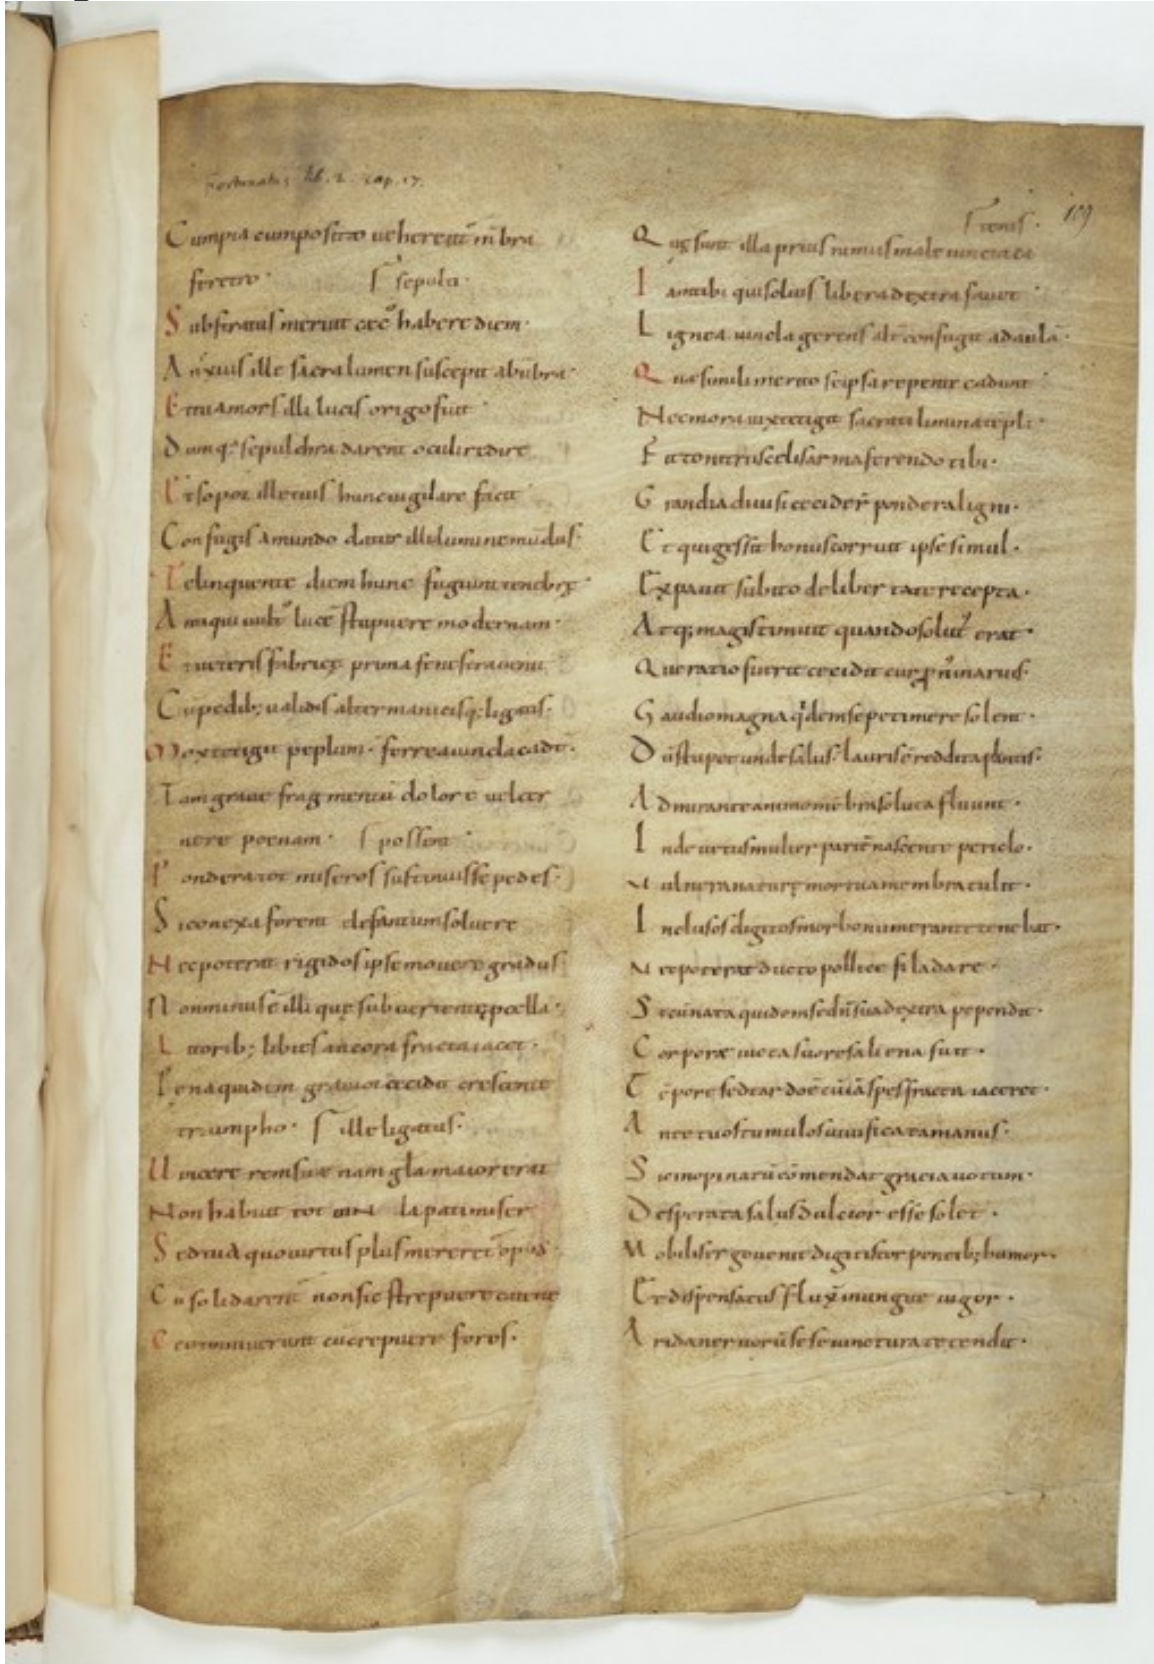 Fortunatus lib. 2. cap. 17.
109
Cumpia composito ueherent̄ mēbra
feretro· sepola·
Subferatus meruit cec' habere diem·
Anxius ille sacra lumen suscepit abūbra·
Et tua mors illi lucis origo fuit
Dumq: sepulchra darent oculi redire
Et sopor ille tuus hunc uigilare facit
Confugis amundo datur illi lumine mūdus·
Telinquente diem hunc fugiunt tenebrę·
Antiqui uult' lucē stupuere modernam·
Et ueteris fabricę prima fenestra uenit
Cūpedib; ualidis alter manicisq; ligatis·
Mox tetigit peplum· ferrea uincla cadt̄·
Tam graue fragmentū dolore ualeter
nere poenam· possent
Pondera tot miseros sustinuisse pedes·
Si conexa forent defantum soluere
Nec poterat rigidos ipse mouere gradus
Non minus ē illi quę sub uertente pcella·
Litorib; libies ancora fracta iacet·
Pena quidem grauior cecidit crescente
triumpho· ille ligatus·
Uincere rem suae nam gl̄a maior erat
Non habuit tot la pati miser
Sed tua quo uirtus plus mereret' opus
Cū solidarent̄ non sic strepuere catene
Comminuerunt cū crepuere fores·
tenis·
Quę sunt illa prius ramus male
I antibi qui solius libera dextra fauet
Lignea uincla gerens altē confugit ad aulā·
Quae simili merito se ipsa repente cadunt
Nec mora ut tetigit sacrati limina tēpli·
Fit tonitrus elisa arma ferendo tibi·
Grandia diuisi ceciderꝰ pondera ligni·
Et qui gessit bonus corruit ipse simul·
Expauit subito de libertate recepta·
Atq; magis timuit quando solut' erat·
Que ratio fuerit cecidit cur pronus in aruis·
Gaudio magna qdem sepe timere solent·
Dū stupet unde salus lauris ē reddita plantis·
Admirante animo mēbra soluta fluunt·
Inde uetus mulier pariē nascente periclo·
Vulnera naturę mortua membra tulit·
Inclusos digitos morbo numerante tenebat·
Nec poterat ducto pollice fila dare·
Secū nata quidem sed nō sua dextra pependit·
Corporae iucta suo res aliena fuit·
Tēpore sed tardo ē cūiā spes fracta iaceret·
Ante tuos tumulos uiuificata manus·
Sic inopinatū cōmendat gracia uotum·
Desperata salus dulcior esse solet·
Mobilis ergo uenit digitis torpentib; humor·
Et dispensatus fluxit in ungue uigor·
Arida neruorū sese iunctura tetendit·